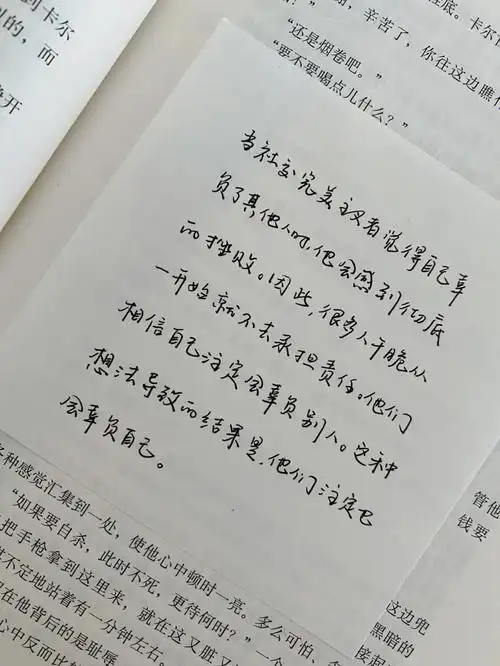 到卡尔
的，而
开
底。卡尔
辛苦了，你往这边瞧
“还是烟卷吧。”
“要不要喝点儿什么？”
当社交完美主义者觉得自己辜
负了其他人时，他会感到彻底
的挫败。因此，很多人干脆从
一开始就不去承担责任。他们
相信自己注定会辜负别人。这种
想法导致的结果是，他们注定也
会辜负自己。
种感觉汇集到一处，使他心中顿时一亮。多么可怕，
“如果要自杀，此时不死，更待何时？”一个
把手枪拿到这里来，就在这又脏又
不定地站着有一分钟左右。
在他背后的是耻辱
心中反而比
管他
钱要
这边兜
黑暗的
接起